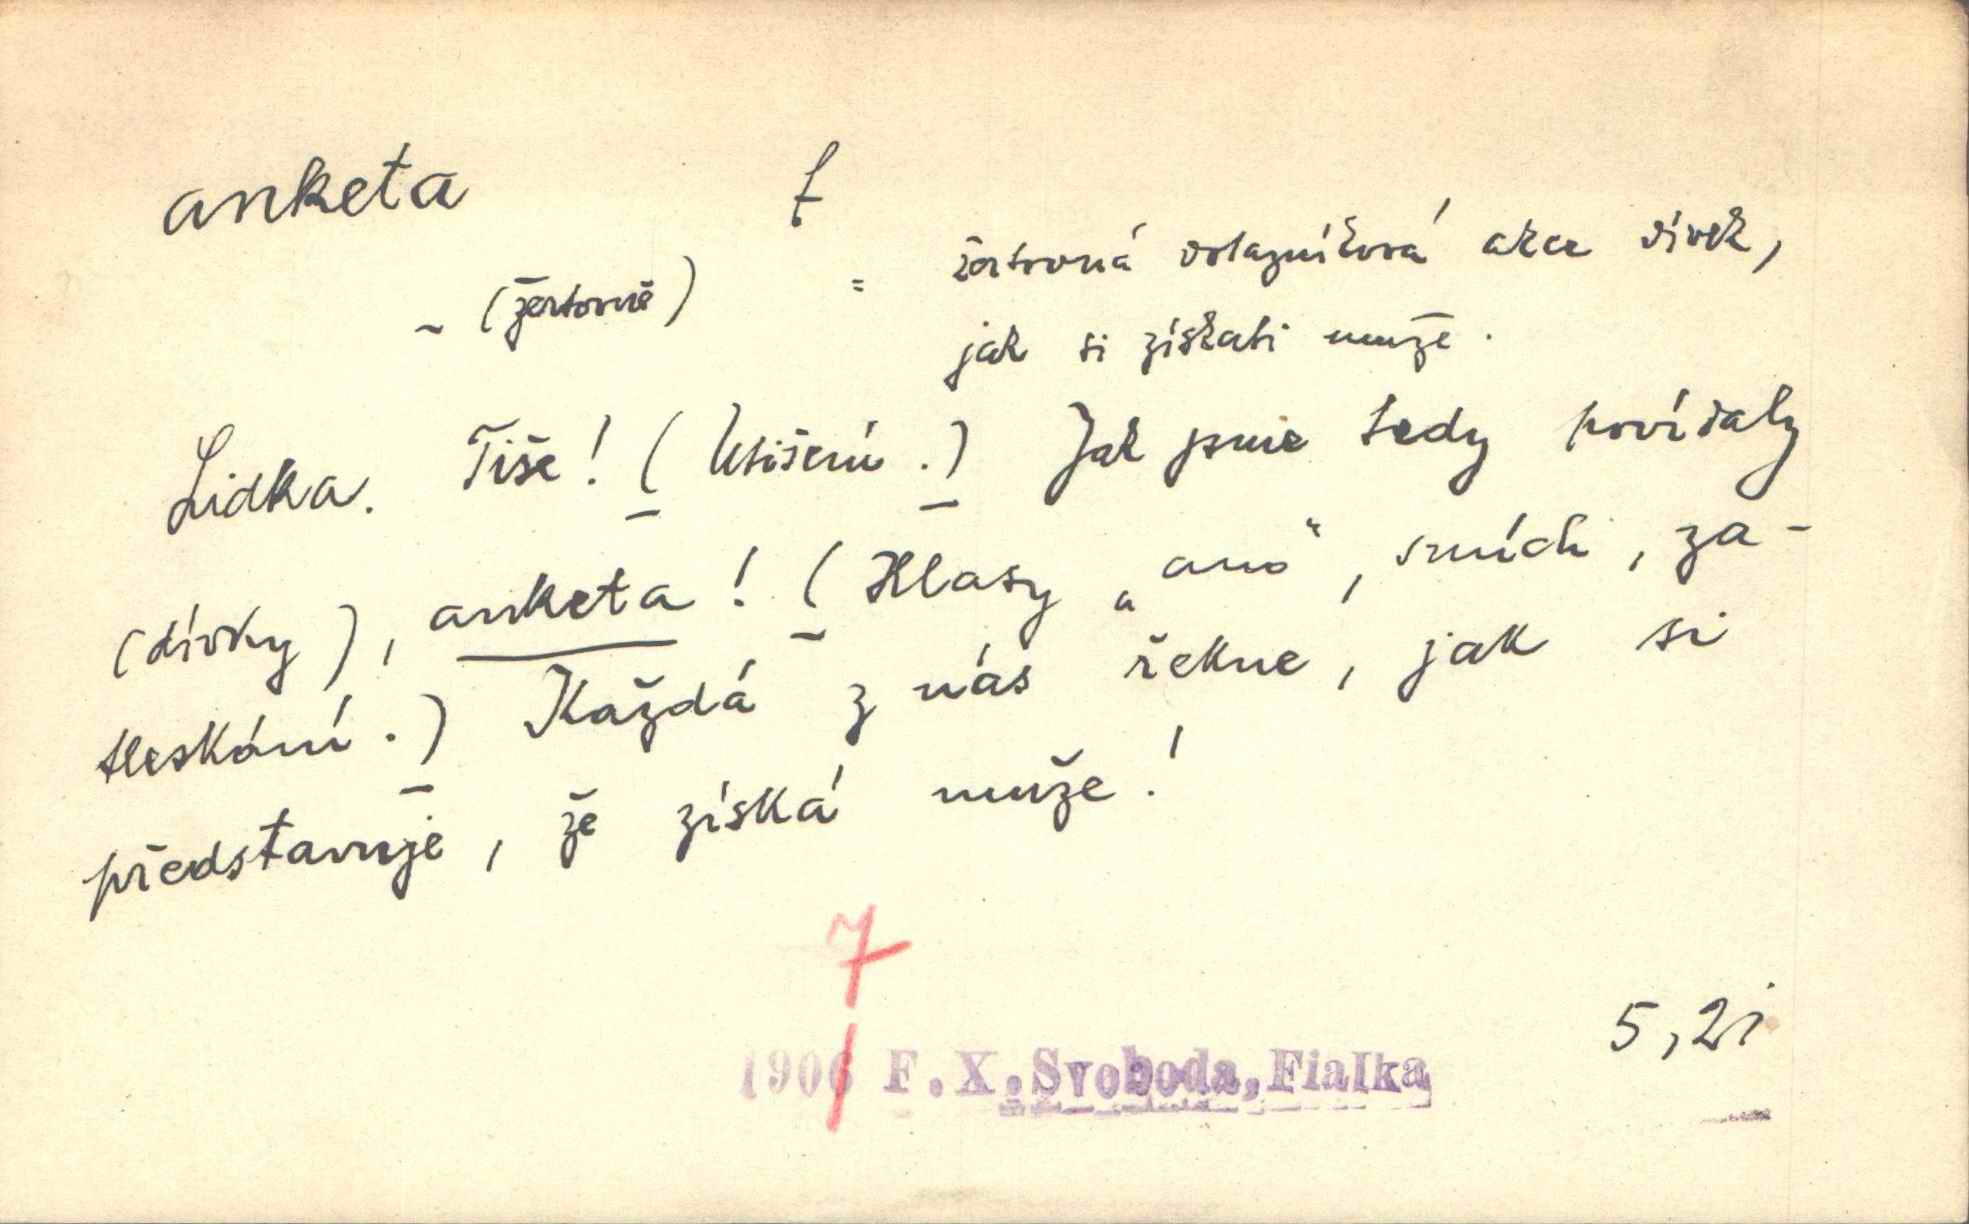 anketa f
~ (žertovně) = žertovná dotazníková akce dívek,
jak si získati muže.
Lidka. Tiše! (Utišení.) Jak jsme tedy povídaly
(dívky), anketa! (Hlasy „ano“, smích, za-
tleskání.) Každá z nás řekne, jak si
představuje, že získá muže!
7
1906 F.X. Svoboda, Fialka
5,2i